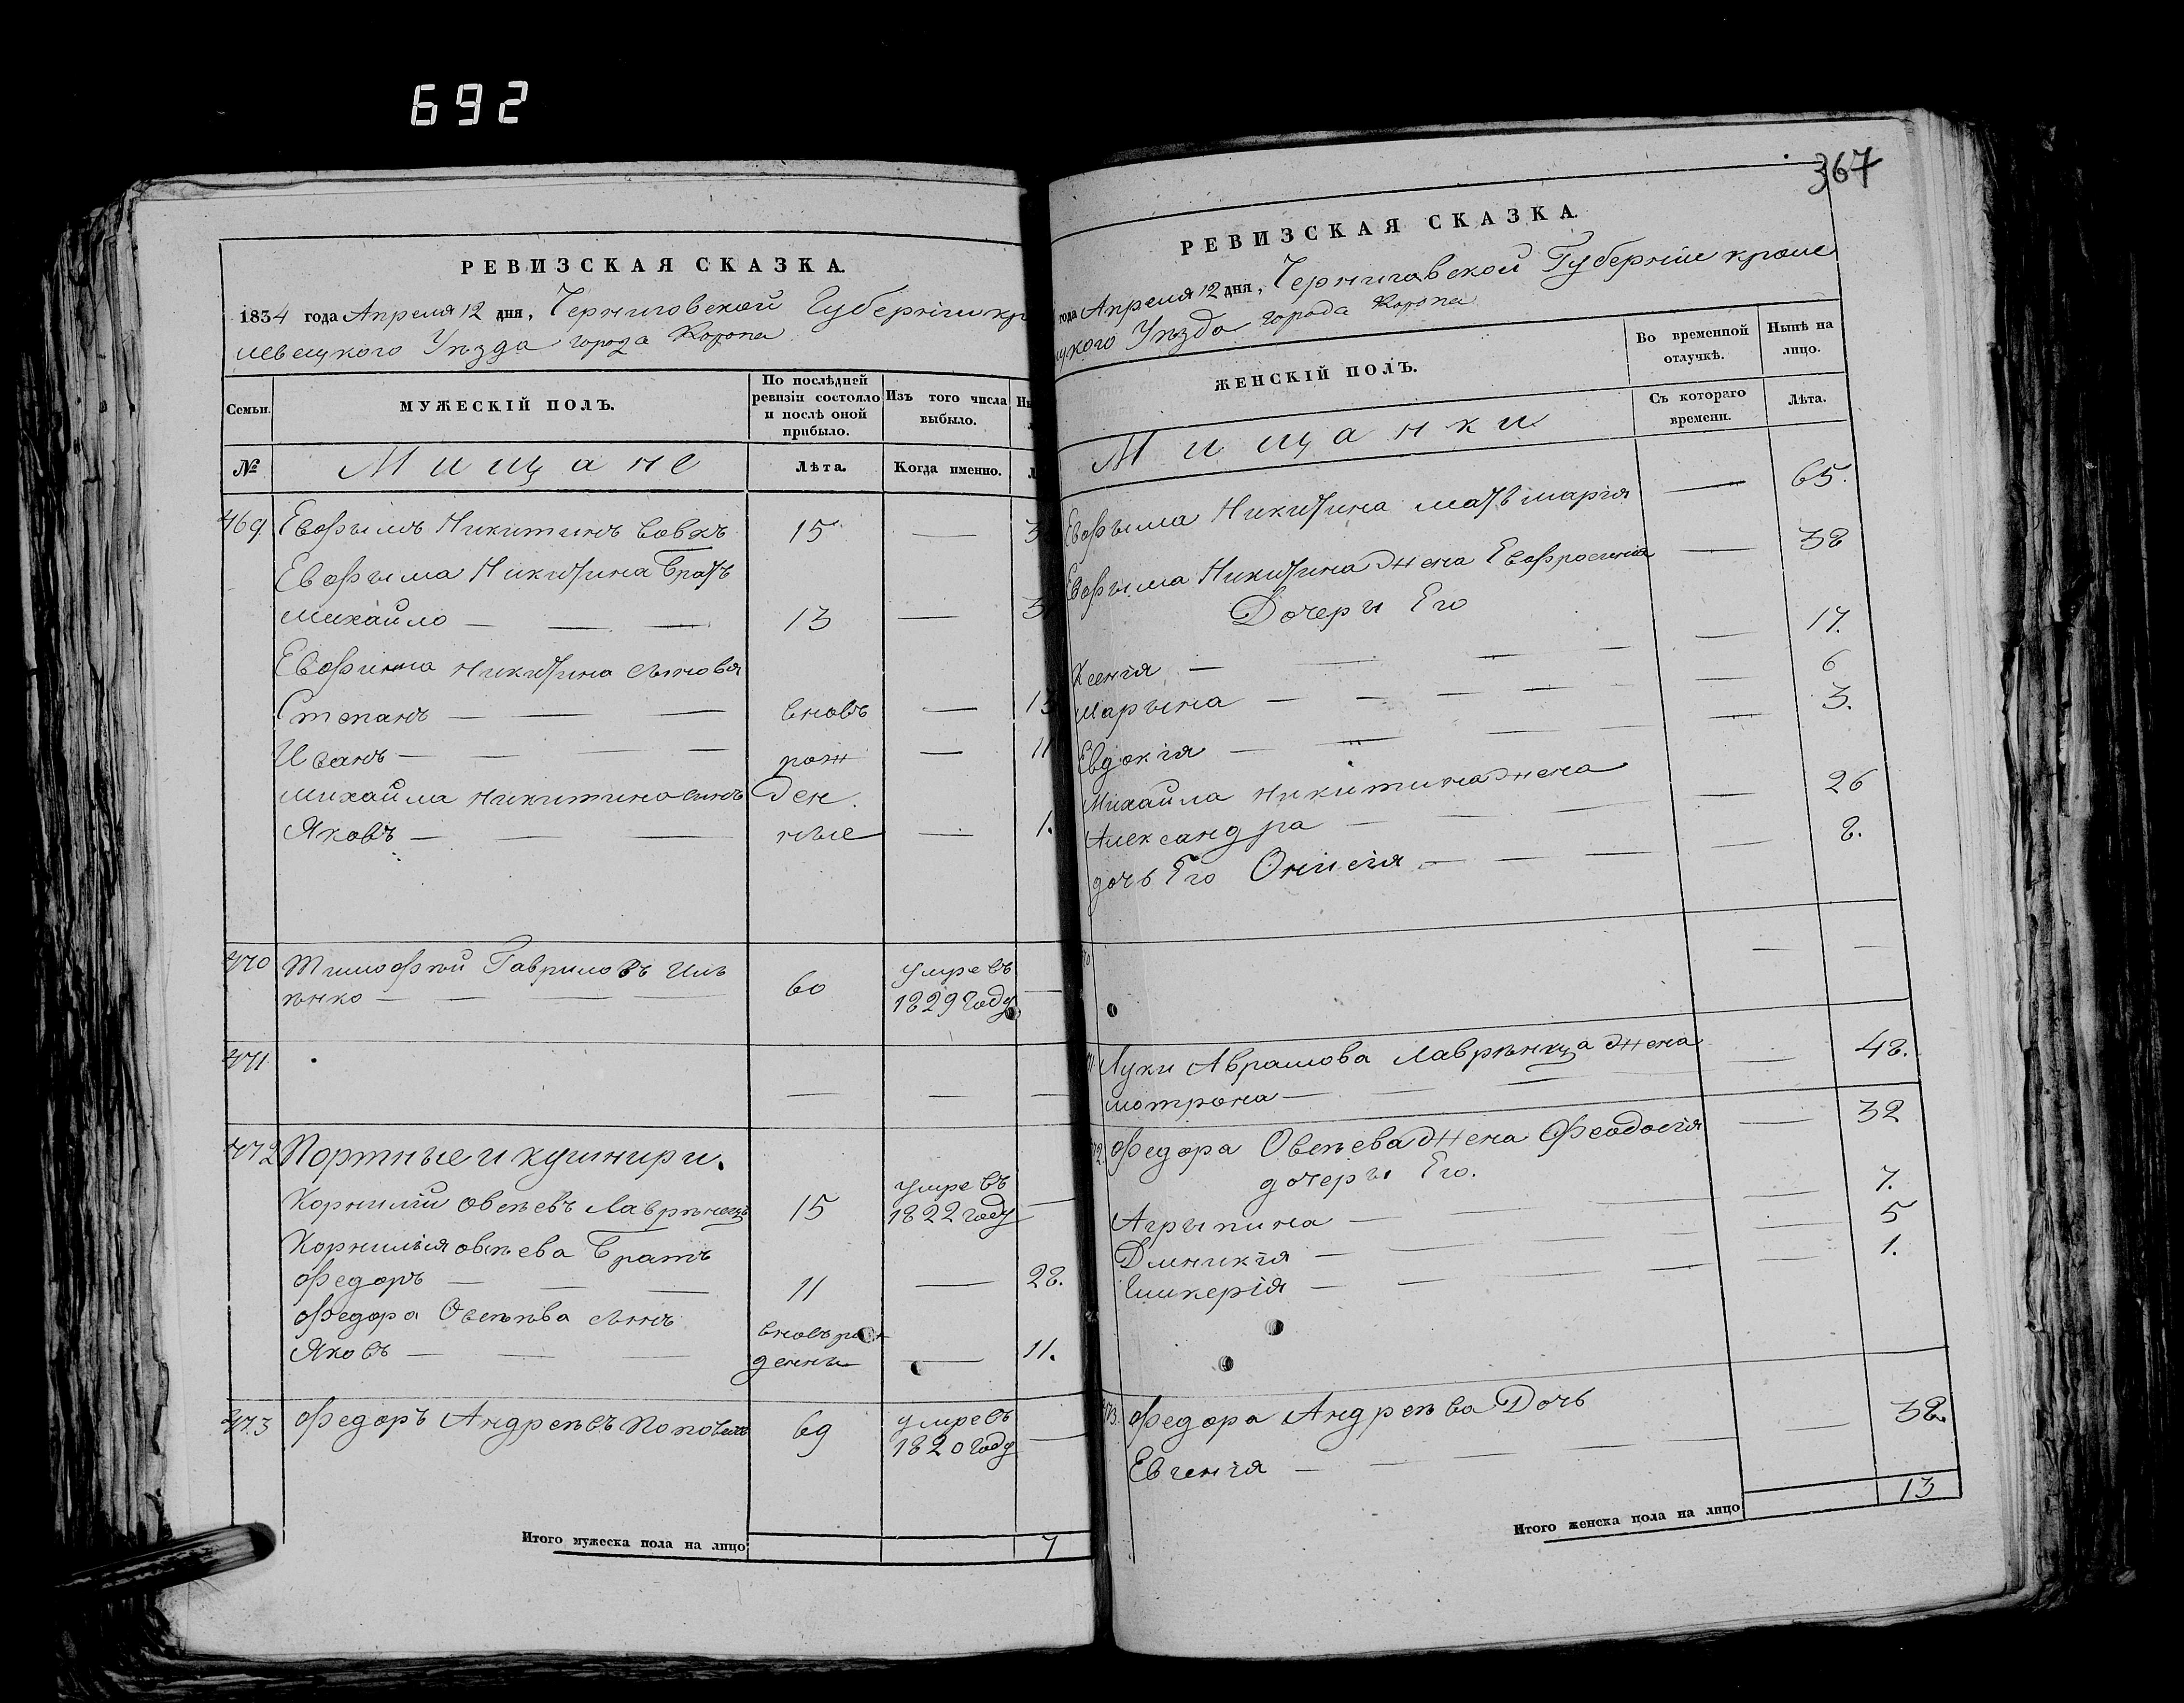 692
РЕВИЗСКАЯ СКАЗКА.
1834 года Апреля 12 дня, Черниговской Губернiи кр
левецкого Уѣзда города Коропа
Семьи.
МУЖЕСКІЙ ПОЛЪ.
По послѣдней ревизіи состояло и послѣ оной прибыло.
Изъ того числа выбыло.
№
Мищане
Лѣта.
Когда именно.
469 Евфымъ Никитинъ Вовкъ 15 — 3
Евфыма Никитина Братъ
Михайло — — — 13 — 3
Евфима Никитина сынова
Степанъ — — — вновъ — 13
Иванъ — — — — рож — 11
Михайла Никитина синъ ден
Яковъ — — — ные — 1.
470 Тимофѣй Гавриловъ Илъ 60 умре въ
ѣнко — — — — 1829 году —
471 — — —
472 Портные и кушнири.
Корнилій Овсѣевъ Лаврѣнецъ 15 умре въ 1822 году —
Корнилія Овсѣева Братъ
Федоръ — — — 11 — 28.
Федора Овсѣѣва сынъ вновъ рож
Яковъ — — — денны — 11.
473 Федоръ Андреѣвъ 69 умре въ 1820 году —
Итого мужеска пола на лицо 7
367
РЕВИЗСКАЯ СКАЗКА.
года Апреля 12 дня, Черниговской Губерніи кроле
цкого Уѣзда города Коропа
ЖЕНСКІЙ ПОЛЪ.
Во временной отлучкѣ.
Нынѣ на лицо.
Мищанки
Съ котораго времени.
Лѣта.
Евфыма Никитина мать Марія — 65.
Евфыма Никитина жена Евфросинія — 38
Дочери Его
Ксенія — — — — — 17.
Марына — — — — — 6
Евдокія — — — — 3.
Михайла Никитина жена
Александра — — — — 26
дочь Его Онисія — — — — 8.
— —
Луки Аврамова Лаврѣнца жена
мотрона — — — — 48.
Федора Овсѣева жена Феодосія — 32
дочеры Его.
Агрыпина — — — — 7.
Домникія — — — — 5
Гликерія — — — — 1.
473. Федора Андреѣва Дочь
Евгенія — — — — — 38.
Итого женска пола на лицо 13